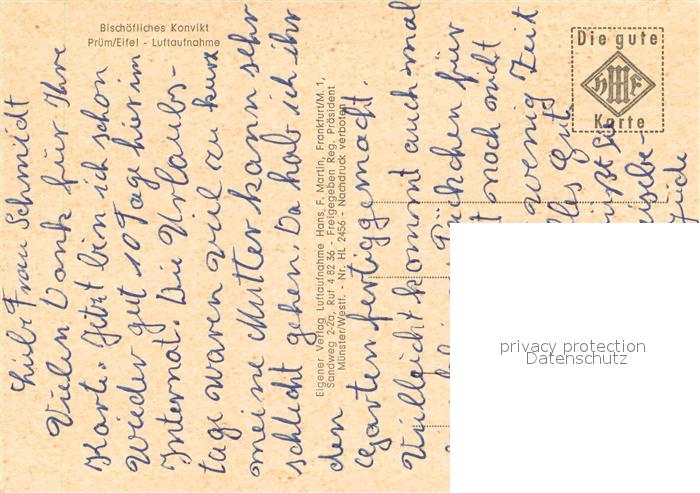 Bischöfliches Konvikt
Prüm/Eifel - Luftaufnahme
Die gute
HMF
Karte
Eigener Verlag Luftaufnahme Hans F. Martin, Frankfurt/M. 1,
Sandweg 2-2a, Ruf 4 82 36 - Freigegeben Reg. Präsident
Münster/Westf. - Nr. HL 2456 - Nachdruck verboten
Liebe Frau Schmidt
Vielen Dank für Ihre
Karte. Jetzt bin ich schon
wieder gut 10 Tage hier im
Internat. Die Urlaubs-
tage waren viel zu kurz
meine Mutter kann sehr
schlecht gehen. Da hab ich ihr
den
Garten fertiggemacht.
Vielleicht kommt auch mal
für
noch nicht
wenig Zeit
Alles Gute
privacy protection
Datenschutz